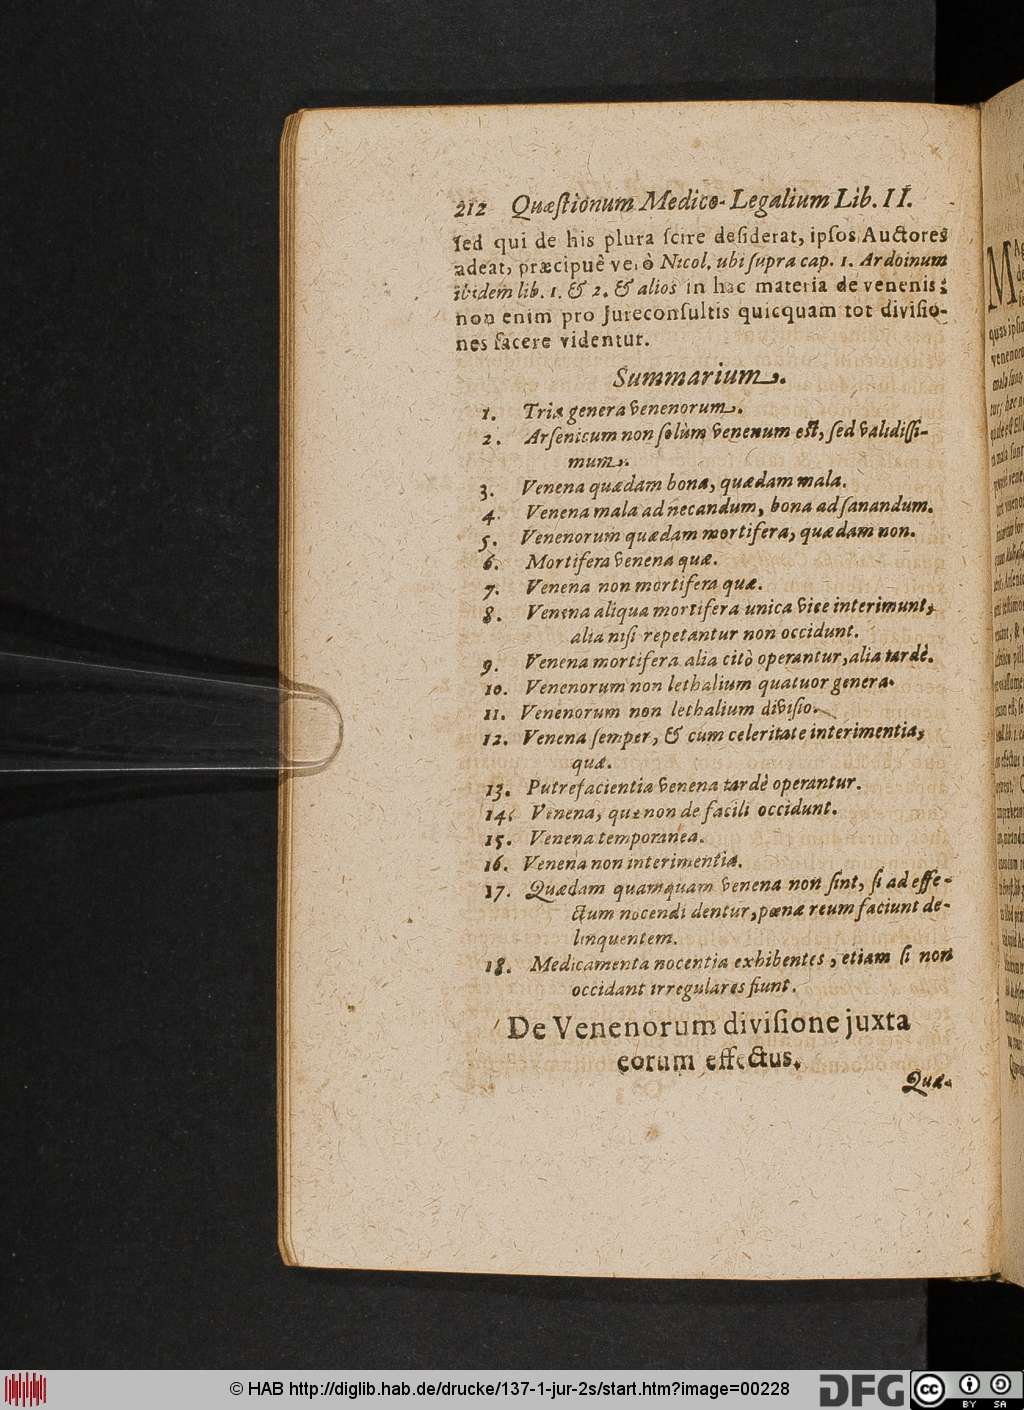 212 Quæſtionum Medico-Legalium Lib. II.
ſed qui de his plura ſcire deſiderat, ipſos Auctores
adeat, præcipuè verò Nicol. ubi ſupra cap. 1. Ardoinum
ibidem lib. 1. & 2. & alios in hac materia de venenis:
non enim pro Jureconſultis quicquam tot diviſio-
nes facere videntur.
Summarium.
1. Tria genera venenorum.
2. Arſenicum non ſolùm venenum eſt, ſed validiſſi-
mum.
3. Venena quædam bona, quædam mala.
4. Venena mala ad necandum, bona ad ſanandum.
5. Venenorum quædam mortifera, quædam non.
6. Mortifera venena quæ.
7. Venena non mortifera quæ.
8. Venena aliqua mortifera unica vice interimunt,
alia niſi repetantur non occidunt.
9. Venena mortifera alia citò operantur, alia tardè.
10. Venenorum non lethalium quatuor genera.
11. Venenorum non lethalium diviſio.
12. Venena ſemper, & cum celeritate interimentia,
quæ.
13. Putrefacientia venena tardè operantur.
14. Venena, quæ non de facili occidunt.
15. Venena temporanea.
16. Venena non interimentia.
17. Quædam quamquam venena non ſint, ſi ad effe-
ctum nocendi dentur, pœnæ reum faciunt de-
linquentem.
18. Medicamenta nocentia exhibentes, etiam ſi non
occidant irregulares fiunt.
De Venenorum diviſione juxta
eorum effectus.
Quæ-
© HAB http://diglib.hab.de/drucke/137-1-jur-2s/start.htm?image=00228
DFG
cc
BY SA